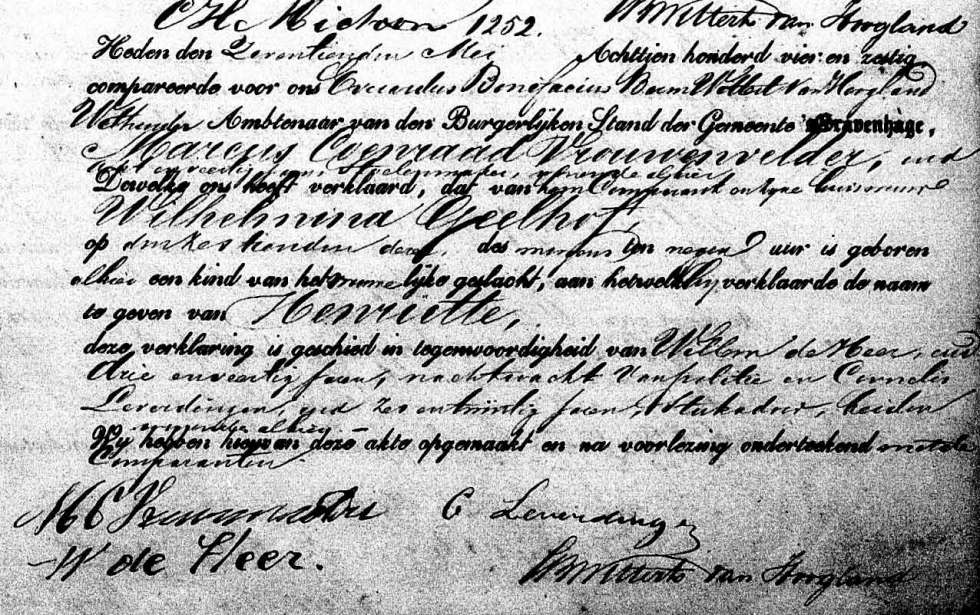 1252. van Hoogland
Heden den Zeventienden Mei Achttien honderd vier en zestig
compareerde voor ons Everardus Bonefacius van Hoogland
Wethouder Ambtenaar van den Burgerlijken Stand der Gemeente 'sGravenhage,
Marcus Coenraad Vrouwenvelder, oud
Dewelke ons heeft verklaard, dat van hem Comparant en zijne huisvrouw
Wilhelmina Geelhof,
op den dezer, des morgens ten negen uur is geboren
alhier een kind van het lijke geslacht, aan hetwelk hij verklaarde de naam
te geven van Henriette,
deze verklaring is geschied in tegenwoordigheid van Willem de Heer, oud
drie en veertig jaren, nachtwacht van politie en Cornelis
Leverdingen, oud zes en twintig jaren, stukadoor, beiden
wonende alhier.
Wij hebben hiervan deze akte opgemaakt en na voorlezing onderteekend met de
Comparanten.
C Leverdinge
W de Heer.
van Hoogland